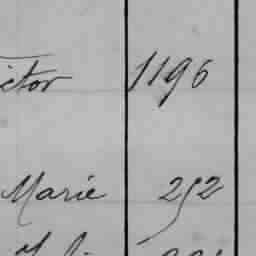 ictor 1196
Marie 252